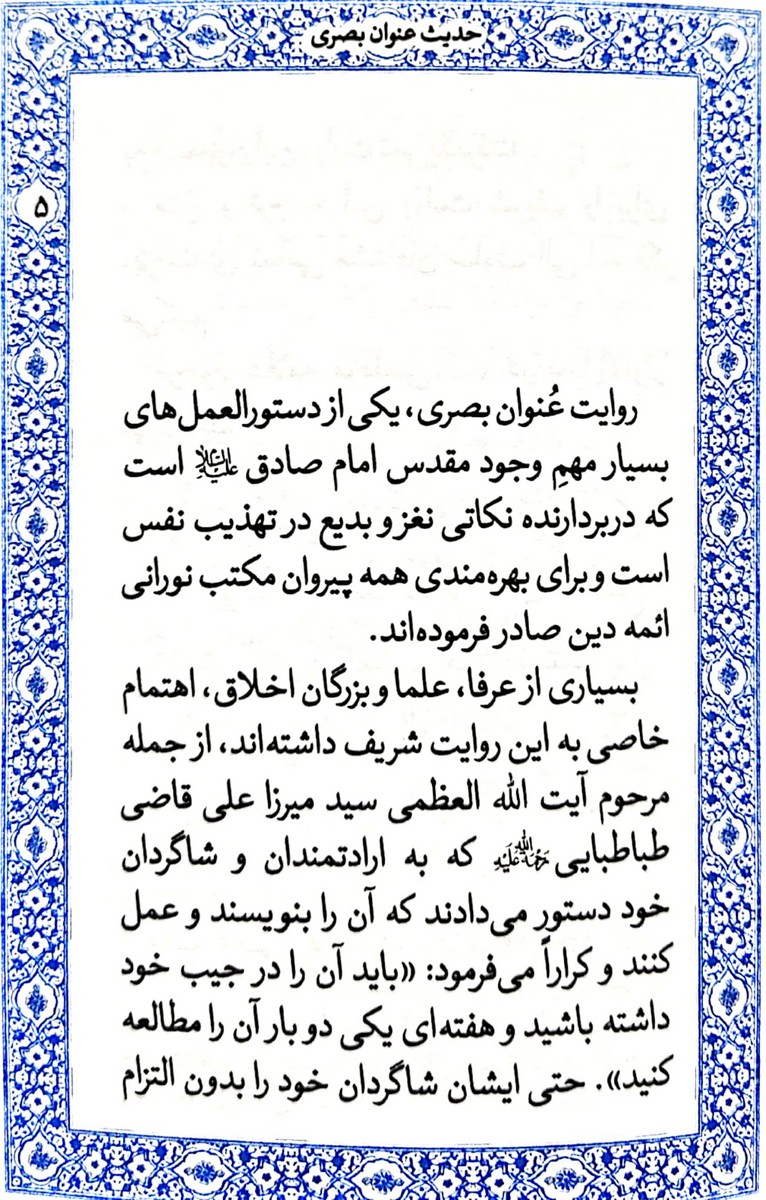 حدیث عنوان بصری
۵
روایت عُنوان بصری، یکی از دستورالعمل‌های
بسیار مهمِ وجود مقدس امام صادق علیه‌السلام است
که دربردارنده نکاتی نغز و بدیع در تهذیب نفس
است و برای بهره‌مندی همه پیروان مکتب نورانی
ائمه دین صادر فرموده‌اند.
بسیاری از عرفا، علما و بزرگان اخلاق، اهتمام
خاصی به این روایت شریف داشته‌اند، از جمله
مرحوم آیت الله العظمی سید میرزا علی قاضی
طباطبایی رحمة‌الله‌علیه که به ارادتمندان و شاگردان
خود دستور می‌دادند که آن را بنویسند و عمل
کنند و کراراً می‌فرمود: «باید آن را در جیب خود
داشته باشید و هفته‌ای یکی دو بار آن را مطالعه
کنید». حتی ایشان شاگردان خود را بدون التزام